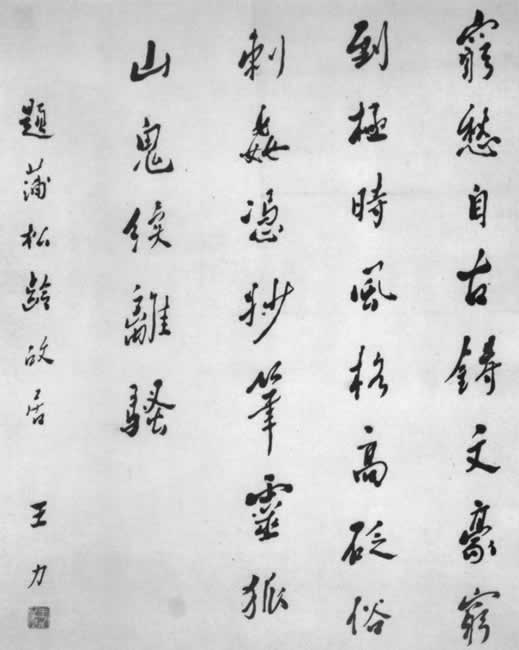 窮愁自古鑄文豪窮
到極時風格高砭俗
刺姦憑妙筆靈狐
山鬼續離騷
題蒲松齡故居 王力